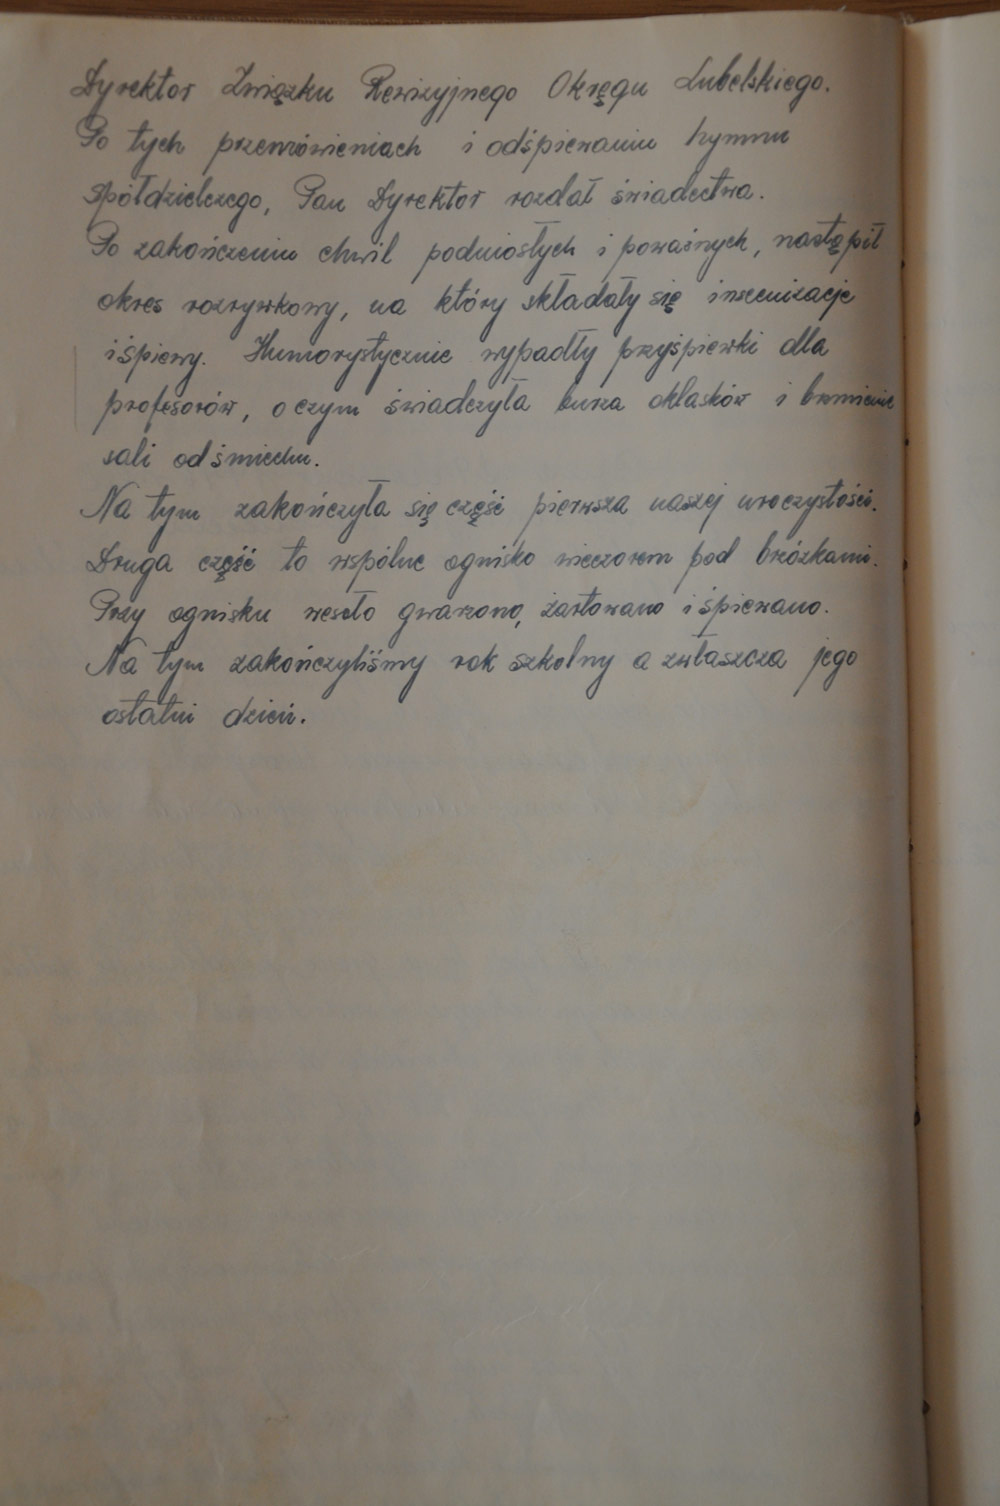 Dyrektor Związku Rewizyjnego Okręgu Lubelskiego.
Po tych przemówieniach i odśpiewaniu hymnu
spółdzielczego, Pan Dyrektor rozdał świadectwa.
Po zakończeniu chwil podniosłych i poważnych, nastąpił
okres rozrywkowy, na który składały się inscenizacje
i śpiewy. Humorystycznie wypadły przyśpiewki dla
profesorów, o czym świadczyła burza oklasków i brzmienie
sali od śmiechu.
Na tym zakończyła się część pierwsza naszej uroczystości.
Druga część to wspólne ognisko wieczorem pod brzózkami.
Przy ognisku wesoło gwarzono, żartowano i śpiewano.
Na tym zakończyliśmy rok szkolny a zwłaszcza jego
ostatni dzień.